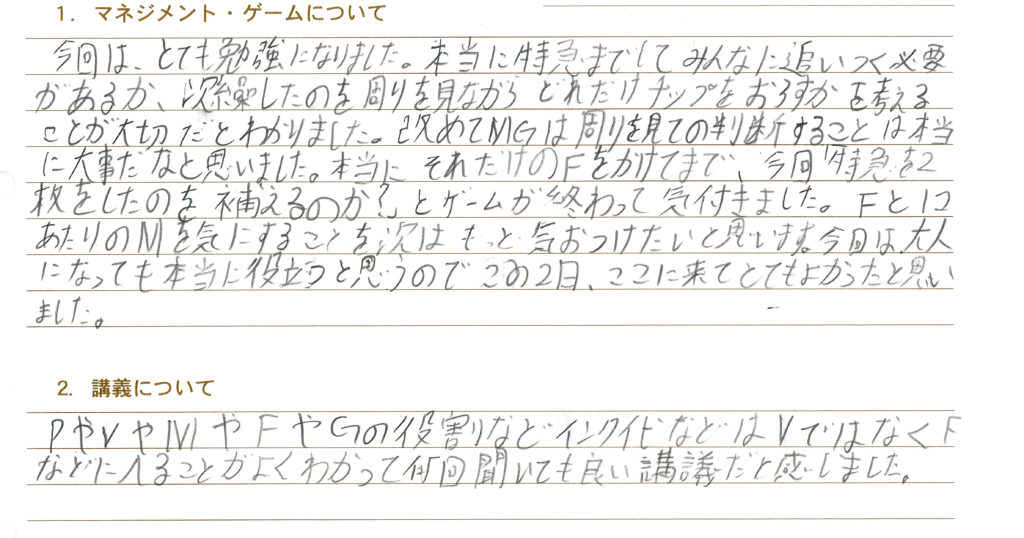 1. マネジメント・ゲームについて
今回は、とても勉強になりました。本当に特急までしてみんなに追いつく必要
があるか、次繰したのを周りを見ながらどれだけチップをおろすかを考える
ことが大切だとわかりました。改めてMGは周りを見ての判断することは本当
に大事だなと思いました。本当にそれだけのFをかけてまで、今回「特急を2
枚をしたのを補えるのか?」とゲームが終わって気付きました。Fと1コ
あたりのMを気にすることを次はもっと気おつけたいと思います。今回は大人
になっても本当に役立つと思うのでこの2日、ここに来てとてもよかったと思い
ました。
2. 講義について
PやVやMやFやGの役割りなどインクイドなどはVではなくF
などに入ることがよくわかって何回聞いても良い講議だと感しました。